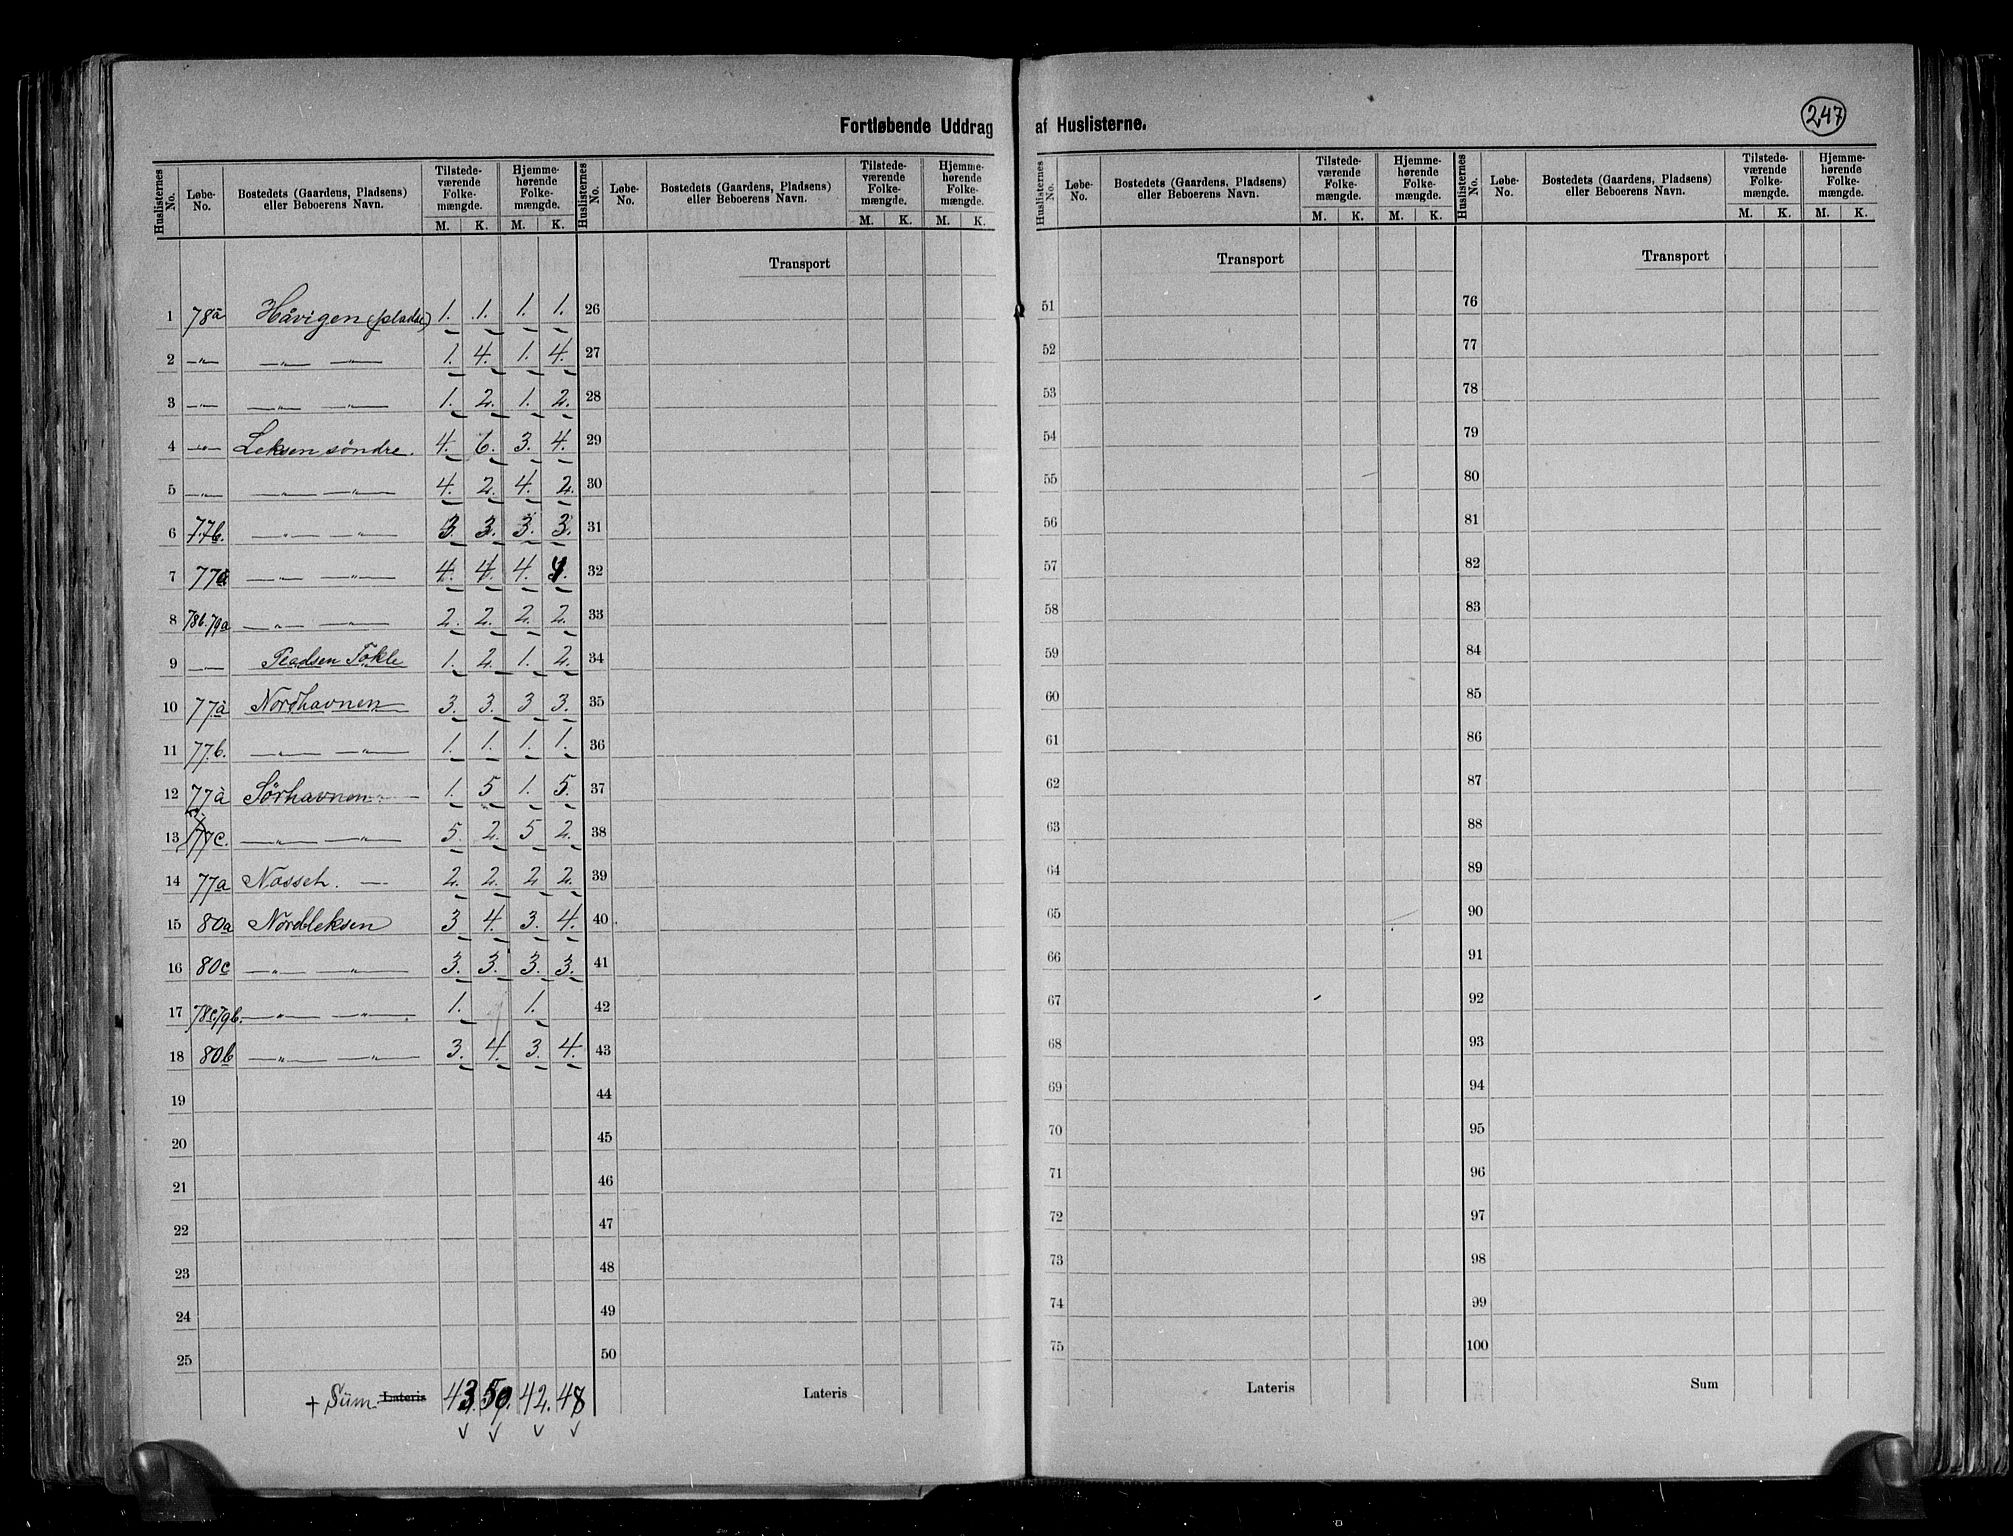 Fortløbende Uddrag af Huslisterne.
247
Huslisternes No. | Løbe-No. | Bostedets (Gaardens, Pladsens) eller Beboerens Navn. | Tilstede-værende Folke-mængde. M. K. | Hjemme-hørende Folke-mængde. M. K.
1 78a Håvigen (plads) 1. 1. 1. 1.
2 —„— —„— —„— 1. 4. 1. 4.
3 —„— —„— —„— 1. 2. 1. 2.
4 —„— Leksen söndre. 4. 6. 3. 4.
5 —„— —„— —„— 4. 2. 4. 2.
6 77b. —„— —„— 3. 3. 3. 3.
7 77a —„— —„— 4. 4. 4. 4.
8 78b.79a —„— —„— 2. 2. 2. 2.
9 —„— Pladsen Tökle 1. 2. 1. 2.
10 77a Nordhavnen 3. 3. 3 3.
11 77.b. —„— —„— 1. 1. 1. 1.
12 77a Sörhavnen 1. 5 1. 5.
13 77c. —„— —„— 5. 2. 5 2.
14 77a Næsset. — 2. 2. 2 2.
15 80a Nordleksen 3 4. 3. 4.
16 80c —„— —„— 3. 3. 3. 3.
17 78c.79b. —„— —„— 1. 1.
18 80b —„— —„— 3. 4. 3. 4.
19
20
21
22
23
24
25
+ Süm. Lateris 43. 50. 42. 48
Huslisternes No. | Løbe-No. | Bostedets (Gaardens, Pladsens) eller Beboerens Navn. | Tilstede-værende Folke-mængde. M. K. | Hjemme-hørende Folke-mængde. M. K.
Transport
26
27
28
29
30
31
32
33
34
35
36
37
38
39
40
41
42
43
44
45
46
47
48
49
50
Lateris
Huslisternes No. | Løbe-No. | Bostedets (Gaardens, Pladsens) eller Beboerens Navn. | Tilstede-værende Folke-mængde. M. K. | Hjemme-hørende Folke-mængde. M. K.
Transport
51
52
53
54
55
56
57
58
59
60
61
62
63
64
65
66
67
68
69
70
71
72
73
74
75
Lateris
Huslisternes No. | Løbe-No. | Bostedets (Gaardens, Pladsens) eller Beboerens Navn. | Tilstede-værende Folke-mængde. M. K. | Hjemme-hørende Folke-mængde. M. K.
Transport
76
77
78
79
80
81
82
83
84
85
86
87
88
89
90
91
92
93
94
95
96
97
98
99
100
Sum